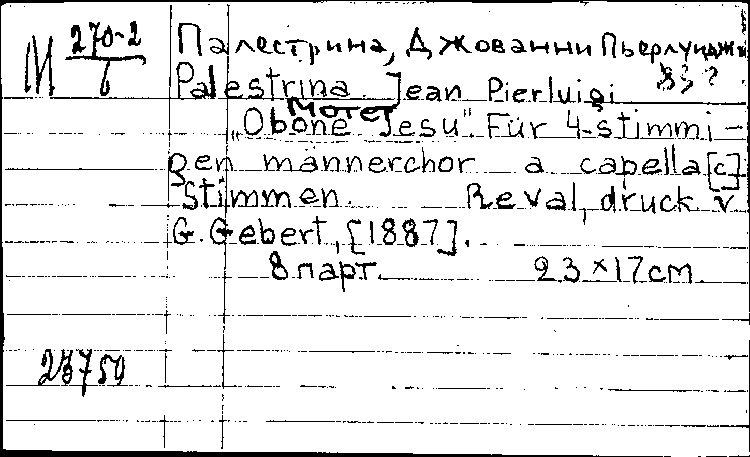 М 270-2/6
Палестрина, Джованни Пьерлуиджи
Palestrina Jean Pierluigi
Мотет
"Obone Jesu". Für 4-stimmi-
gen männerchor a capella [c]
Stimmen. Reval, druck v
G. Gebert, [1887].
8 парт. 23×17cm.
23750